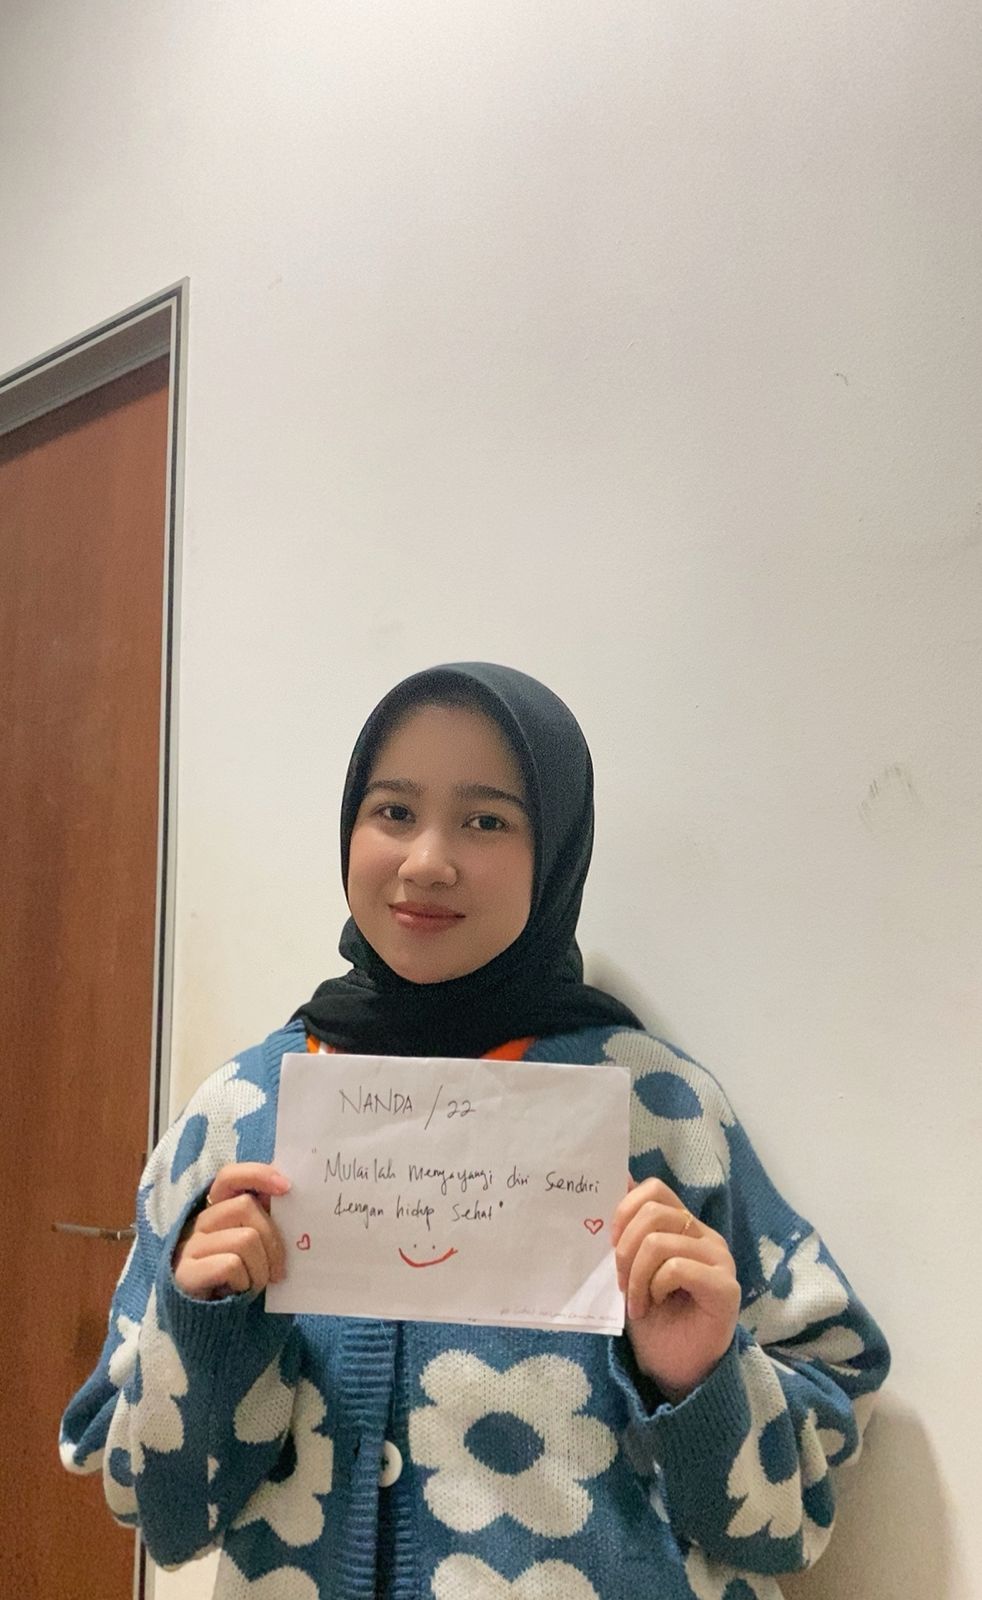 NANDA / 22
"Mulailah menyayangi diri sendiri
dengan hidup sehat"